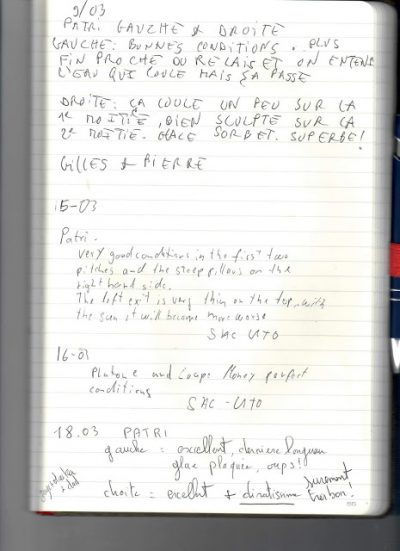 9/03
PATRI GAUCHE & DROITE
GAUCHE: BONNES CONDITIONS.. PLUS
FIN PROCHE DU RELAIS ET ON ENTEND
L'EAU QUI COULE MAIS ÇA PASSE
DROITE: ÇA COULE UN PEU SUR LA
1e MOITIE, BIEN SCULPTE SUR LA
2e MOITIE. GLACE SORBET. SUPERBE!
GILLES & PIERRE
15-03
Patri.
very good conditions in the first two
pitches and the steep pillows on the
right hand side.
The left exit is very thin on the top, with
the sun it will become more worse
SAC UTO
16-03
Plutone and Coupe Money perfect
conditions
SAC-UTO
18.03 PATRI
gauche = excellent, dernière longueur
glace plaquée, oups!
droite = excellent +
surement